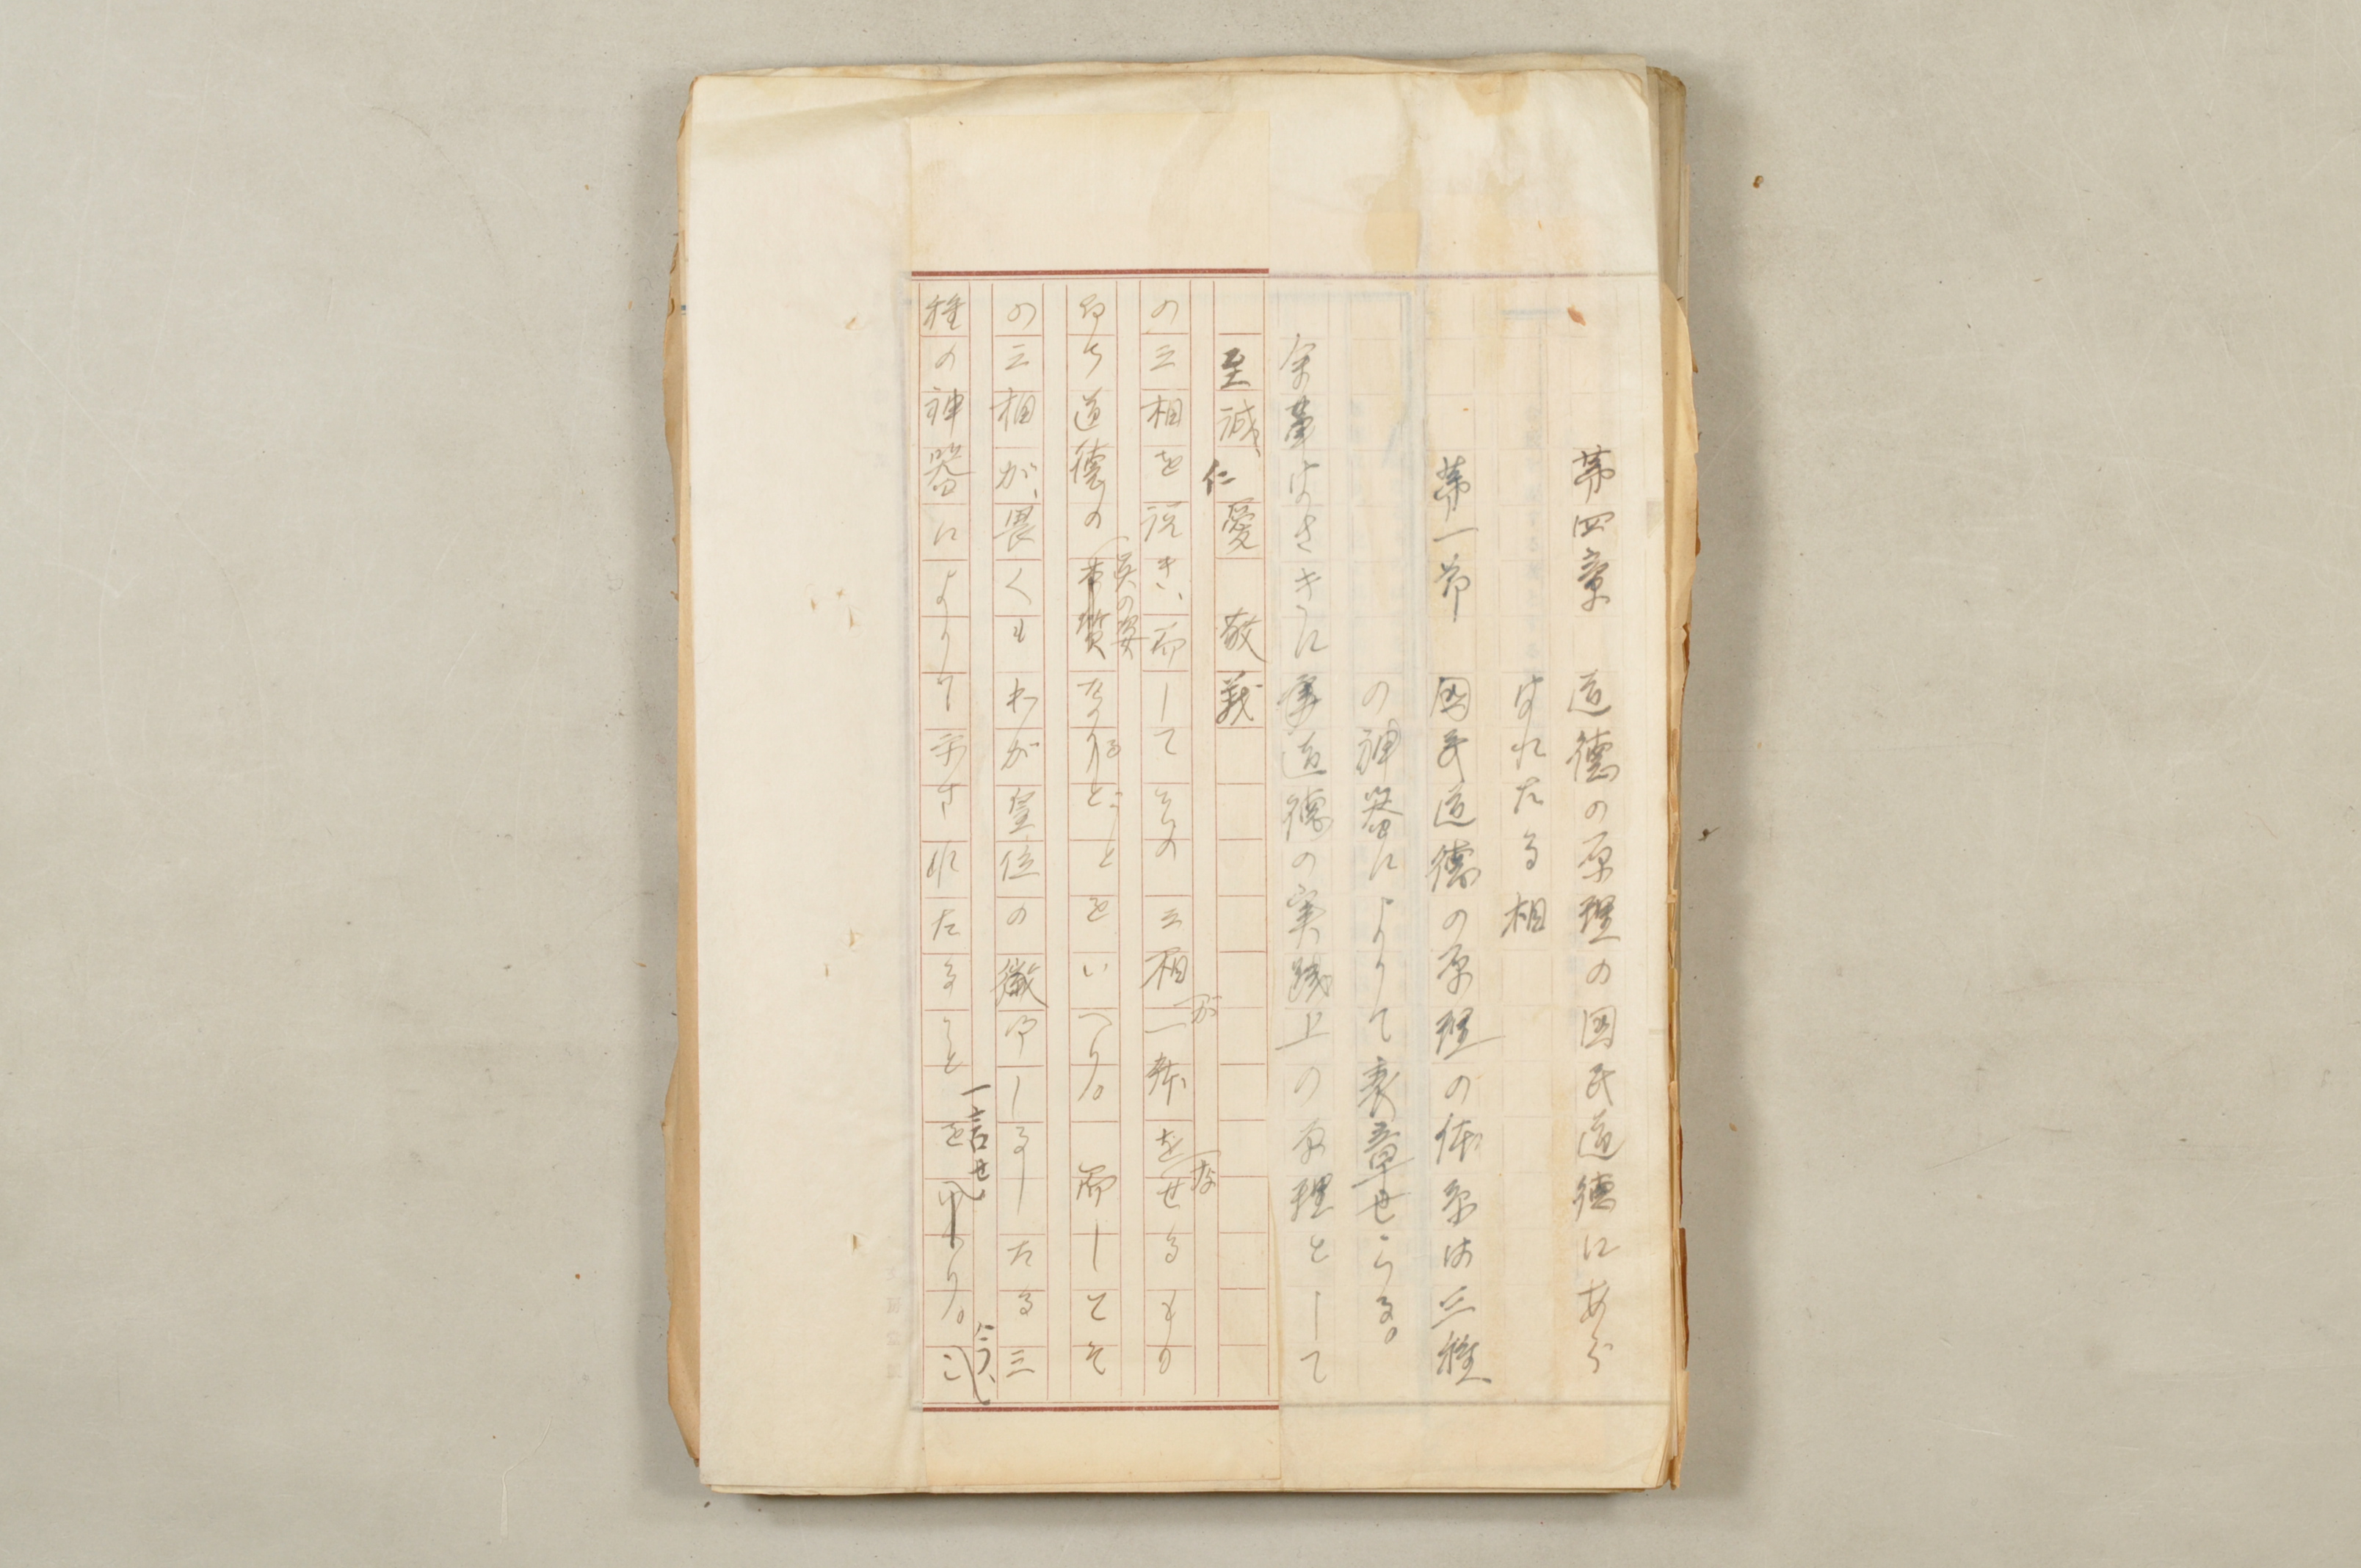 第四章　道徳の原理の国民道徳にあら
はれたる相
第一節　国民道徳の原理の体系は三種
の神器によりて表章せらる。
余輩はさきに道徳の実践上の原理として
至誠、仁愛　敬義
の三相を説き、而してその三相が一体をなせるもの
即ち道徳の本質真の姿なりることをいへり。而してそ
の三相が、畏くもわが皇位の徴しるしたる三
種の神器によりて示されたることを一言せり。今、こ